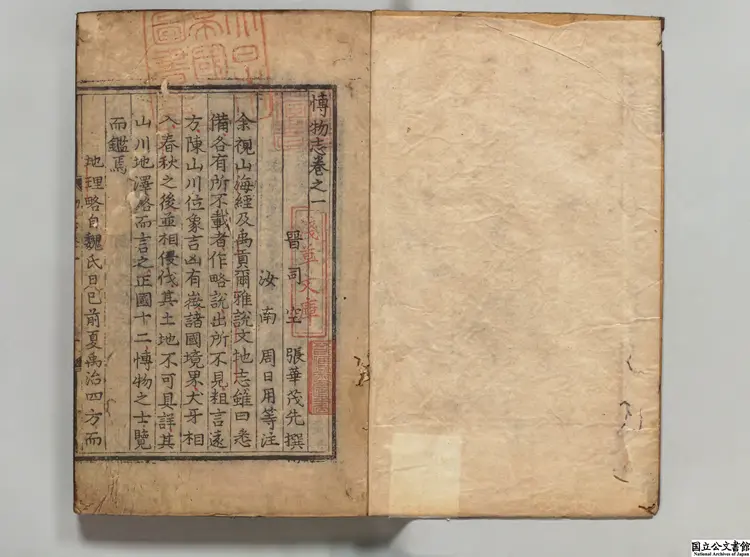 博物志卷之一
晉司空張華茂先撰
汝南周日用等注
余視山海經及禹貢爾雅說文地志雖曰悉
備各有所不載者作略說出所不見粗言遠
方陳山川位象吉凶有徵諸國境界犬牙相
入春秋之後並相侵伐其土地不可具詳其
山川地澤略而言之正國十二博物之士覽
而鑑焉
地理略自魏氏日已前夏禹治四方而
淺草文庫
国立公文書館
National Archives of Japan